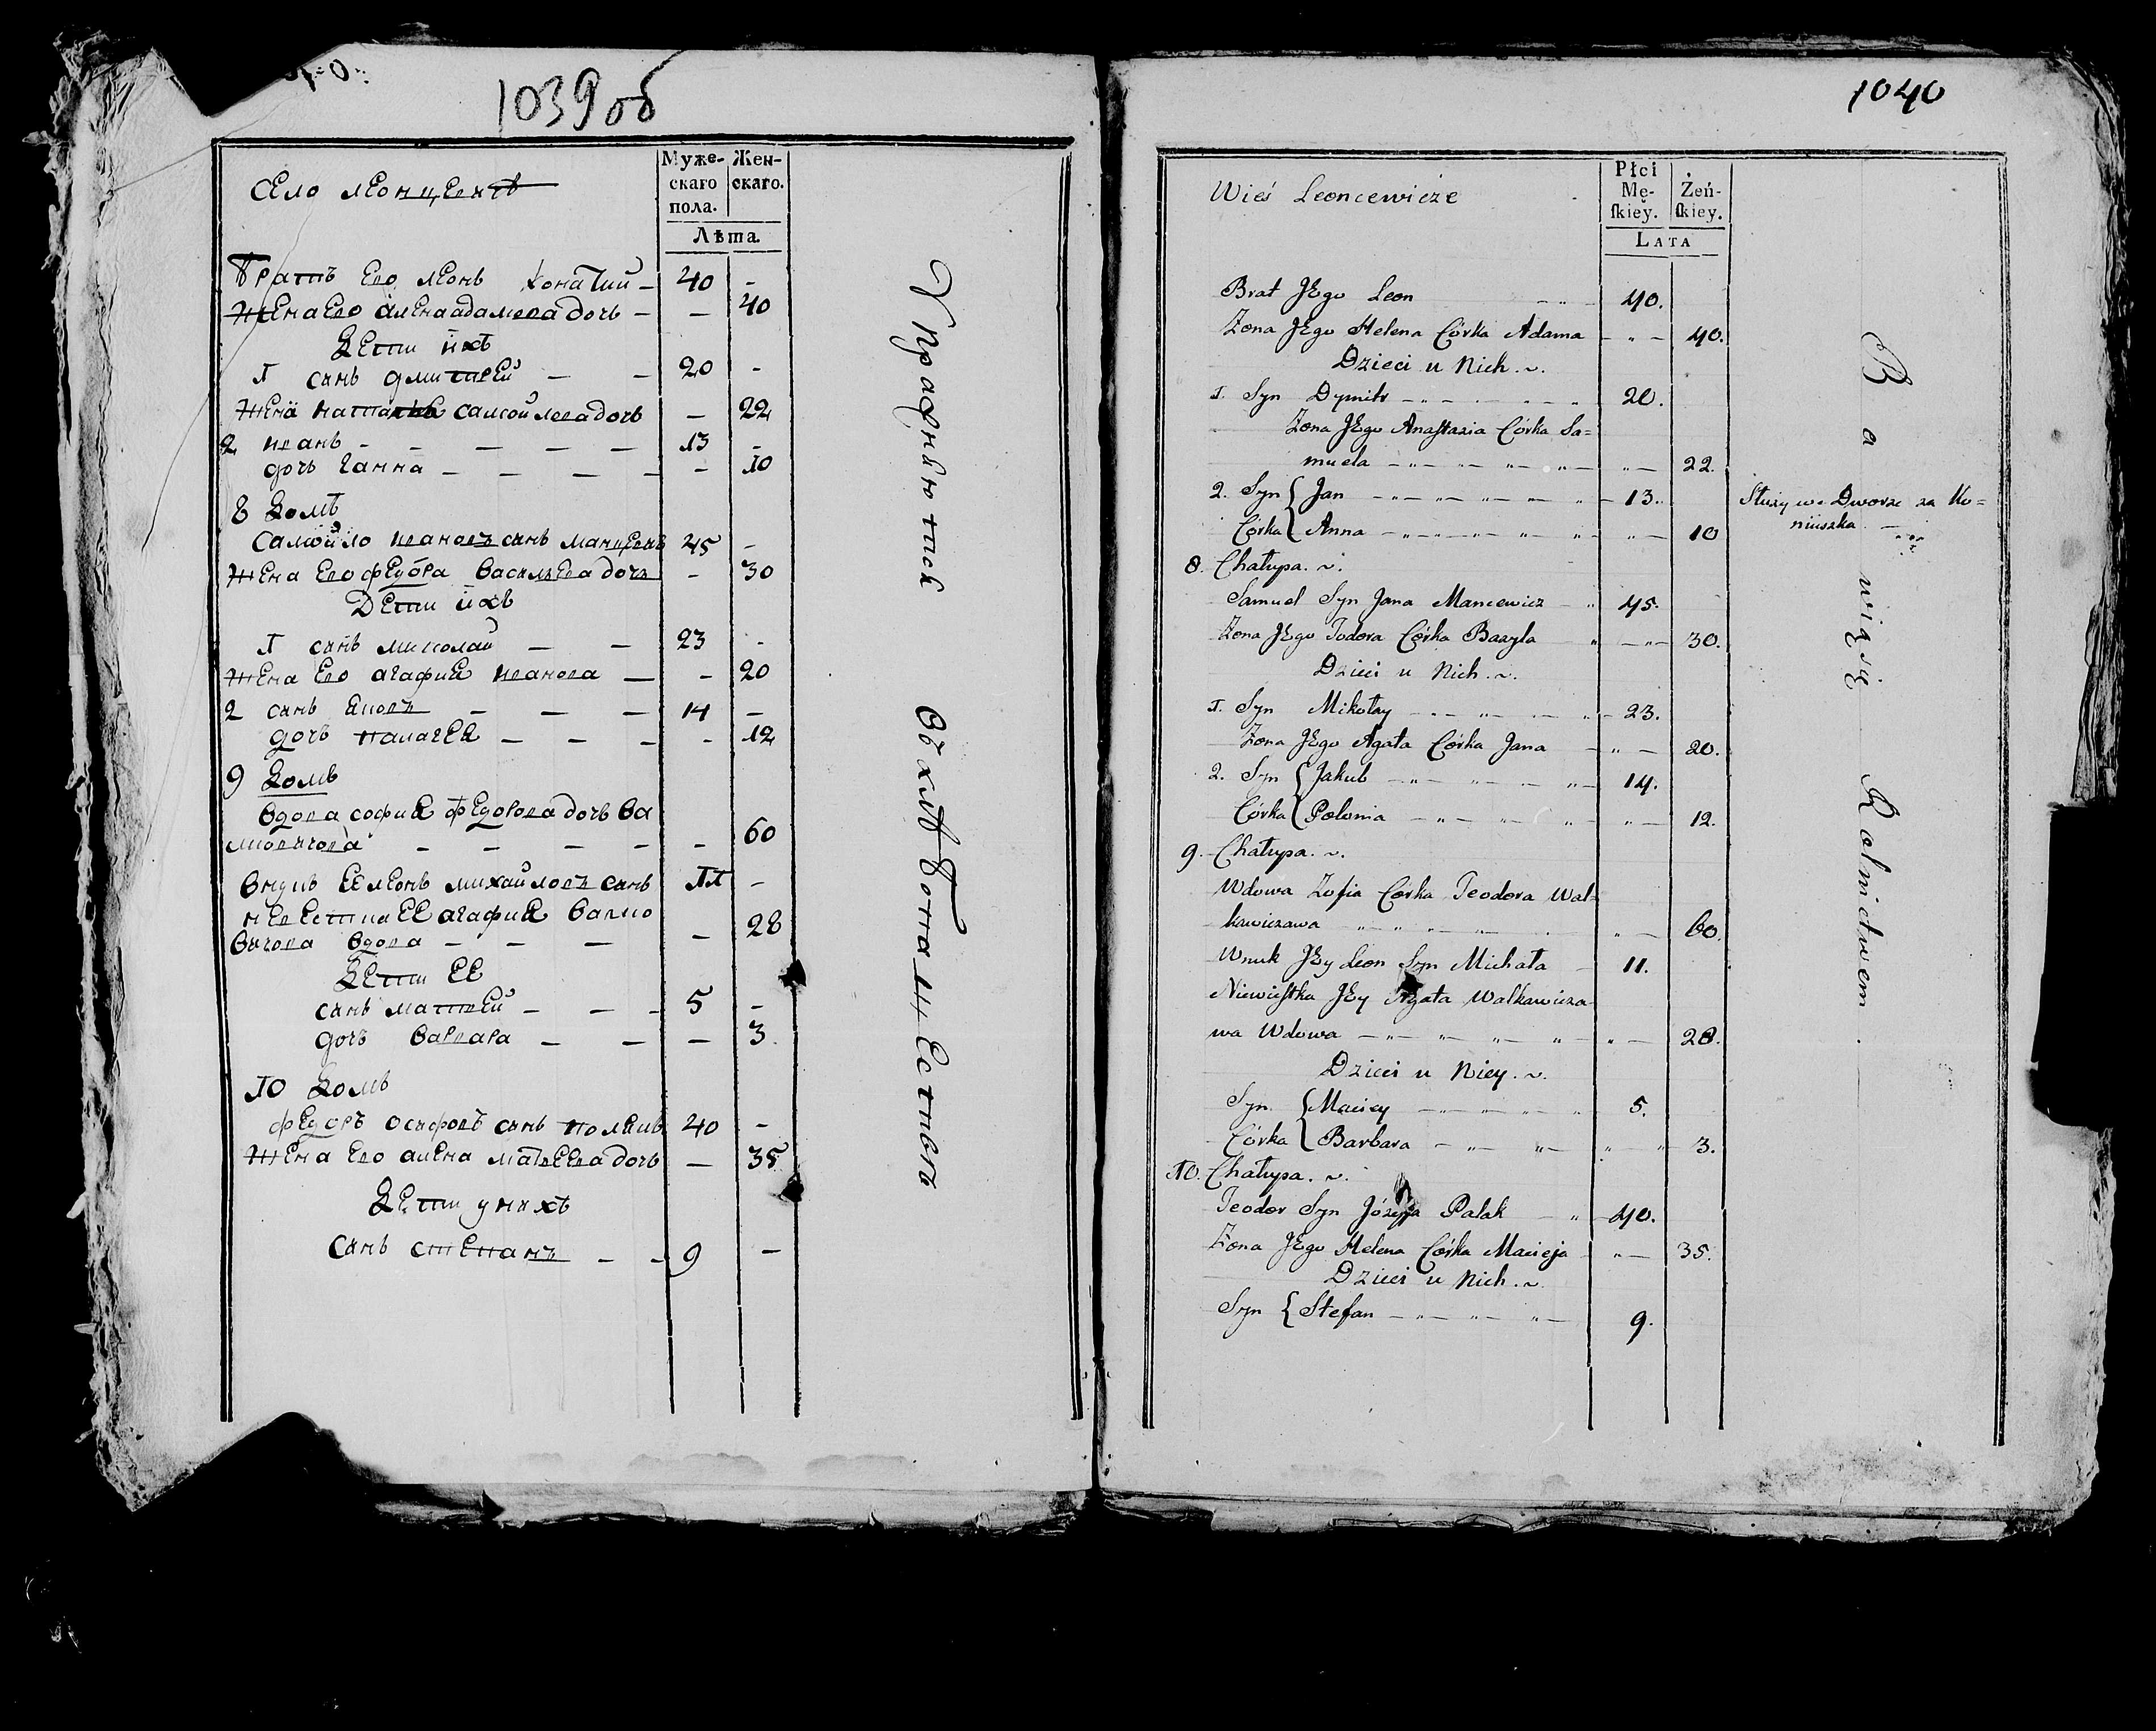 1039об
Село Леонцевич
Муже-
скаго
пола.
Жен-
скаго.
Лѣта.
Братъ Ево Леонъ 40 -
Жена Ево Алена адамова дочь - - 40
Дети ихъ
1 сынъ дмитрей - - 20 -
Жена самойлова дочь - 22
2 иванъ - - - - - 13 -
дочь Ганна - - - - - 10
8 Домъ
Самойло ивановъ сынъ 45 -
Жена Ево федора васильева дочь - 30
Дети ихъ
1 сынъ миколай - - 23 -
Жена Ево агафия иванова - - 20
2 сынъ - - - 14 -
дочь палагея - - - - 12
9 Домъ
вдова софия федорова дочь ва
- - - - - 60
внукъ ЕЕ леонъ михайловъ сынъ 11 -
невестка ЕЕ агафия
вдова - - - - 28
Дети ЕЕ
сынъ матвей - - - 5 -
дочь варвара - - - 3
10 Домъ
федоръ осифовъ сынъ 40 -
Жена Ево алена матвеева дочь - 35
Дети у нихъ
Сынъ степанъ - - 9 -
въ хлѣбопашествѣ
1040
Wieś Leoncewicze
Płci
Mę-
ſkiey.
Żeń-
ſkiey.
LATA
Brat JEgo Leon 40.
Żona JEgo Helena Córka Adama 40.
Dzieci u Nich.
1. Syn Dymitr 20.
Żona JEgo Anaſtazia Córka Sa=
muela 22.
2. Syn { Jan 13.
Córka { Anna 10
Służy we Dworze za Ko=
niuszka.
8. Chałupa.
Samuel Syn Jana Mancewicz 45.
Żona JEgo Todora Córka Bazyla 30.
Dzieci u Nich.
1. Syn Mikołay 23.
Żona JEgo Agata Córka Jana 20.
2. Syn { Jakub 14.
Córka { Polonia 12.
9. Chałupa.
Wdowa Zofia Corka Teodora Wal=
kawiczawa 60.
Wnuk JEy Leon Syn Michała 11.
Niewieſtka JEy Agata Walkawicza-
wa Wdowa 28.
Dzieci u Niey.
Syn { Maciey 5.
Córka { Barbara 3.
10. Chałupa.
Teodor Syn Józefa Palak 40.
Żona JEgo Helena Córka Macieja 35.
Dzieci u Nich.
Syn { Stefan 9.
Bawią się Rolnictwem.